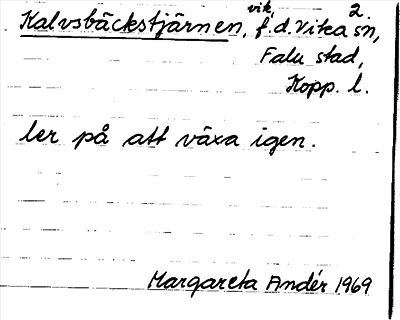 Kalvsbäckstjärnen, vik, f.d. Vika sn, 2
Falu stad,
Kopp. l.
ler på att växa igen.
Margareta Andér 1969